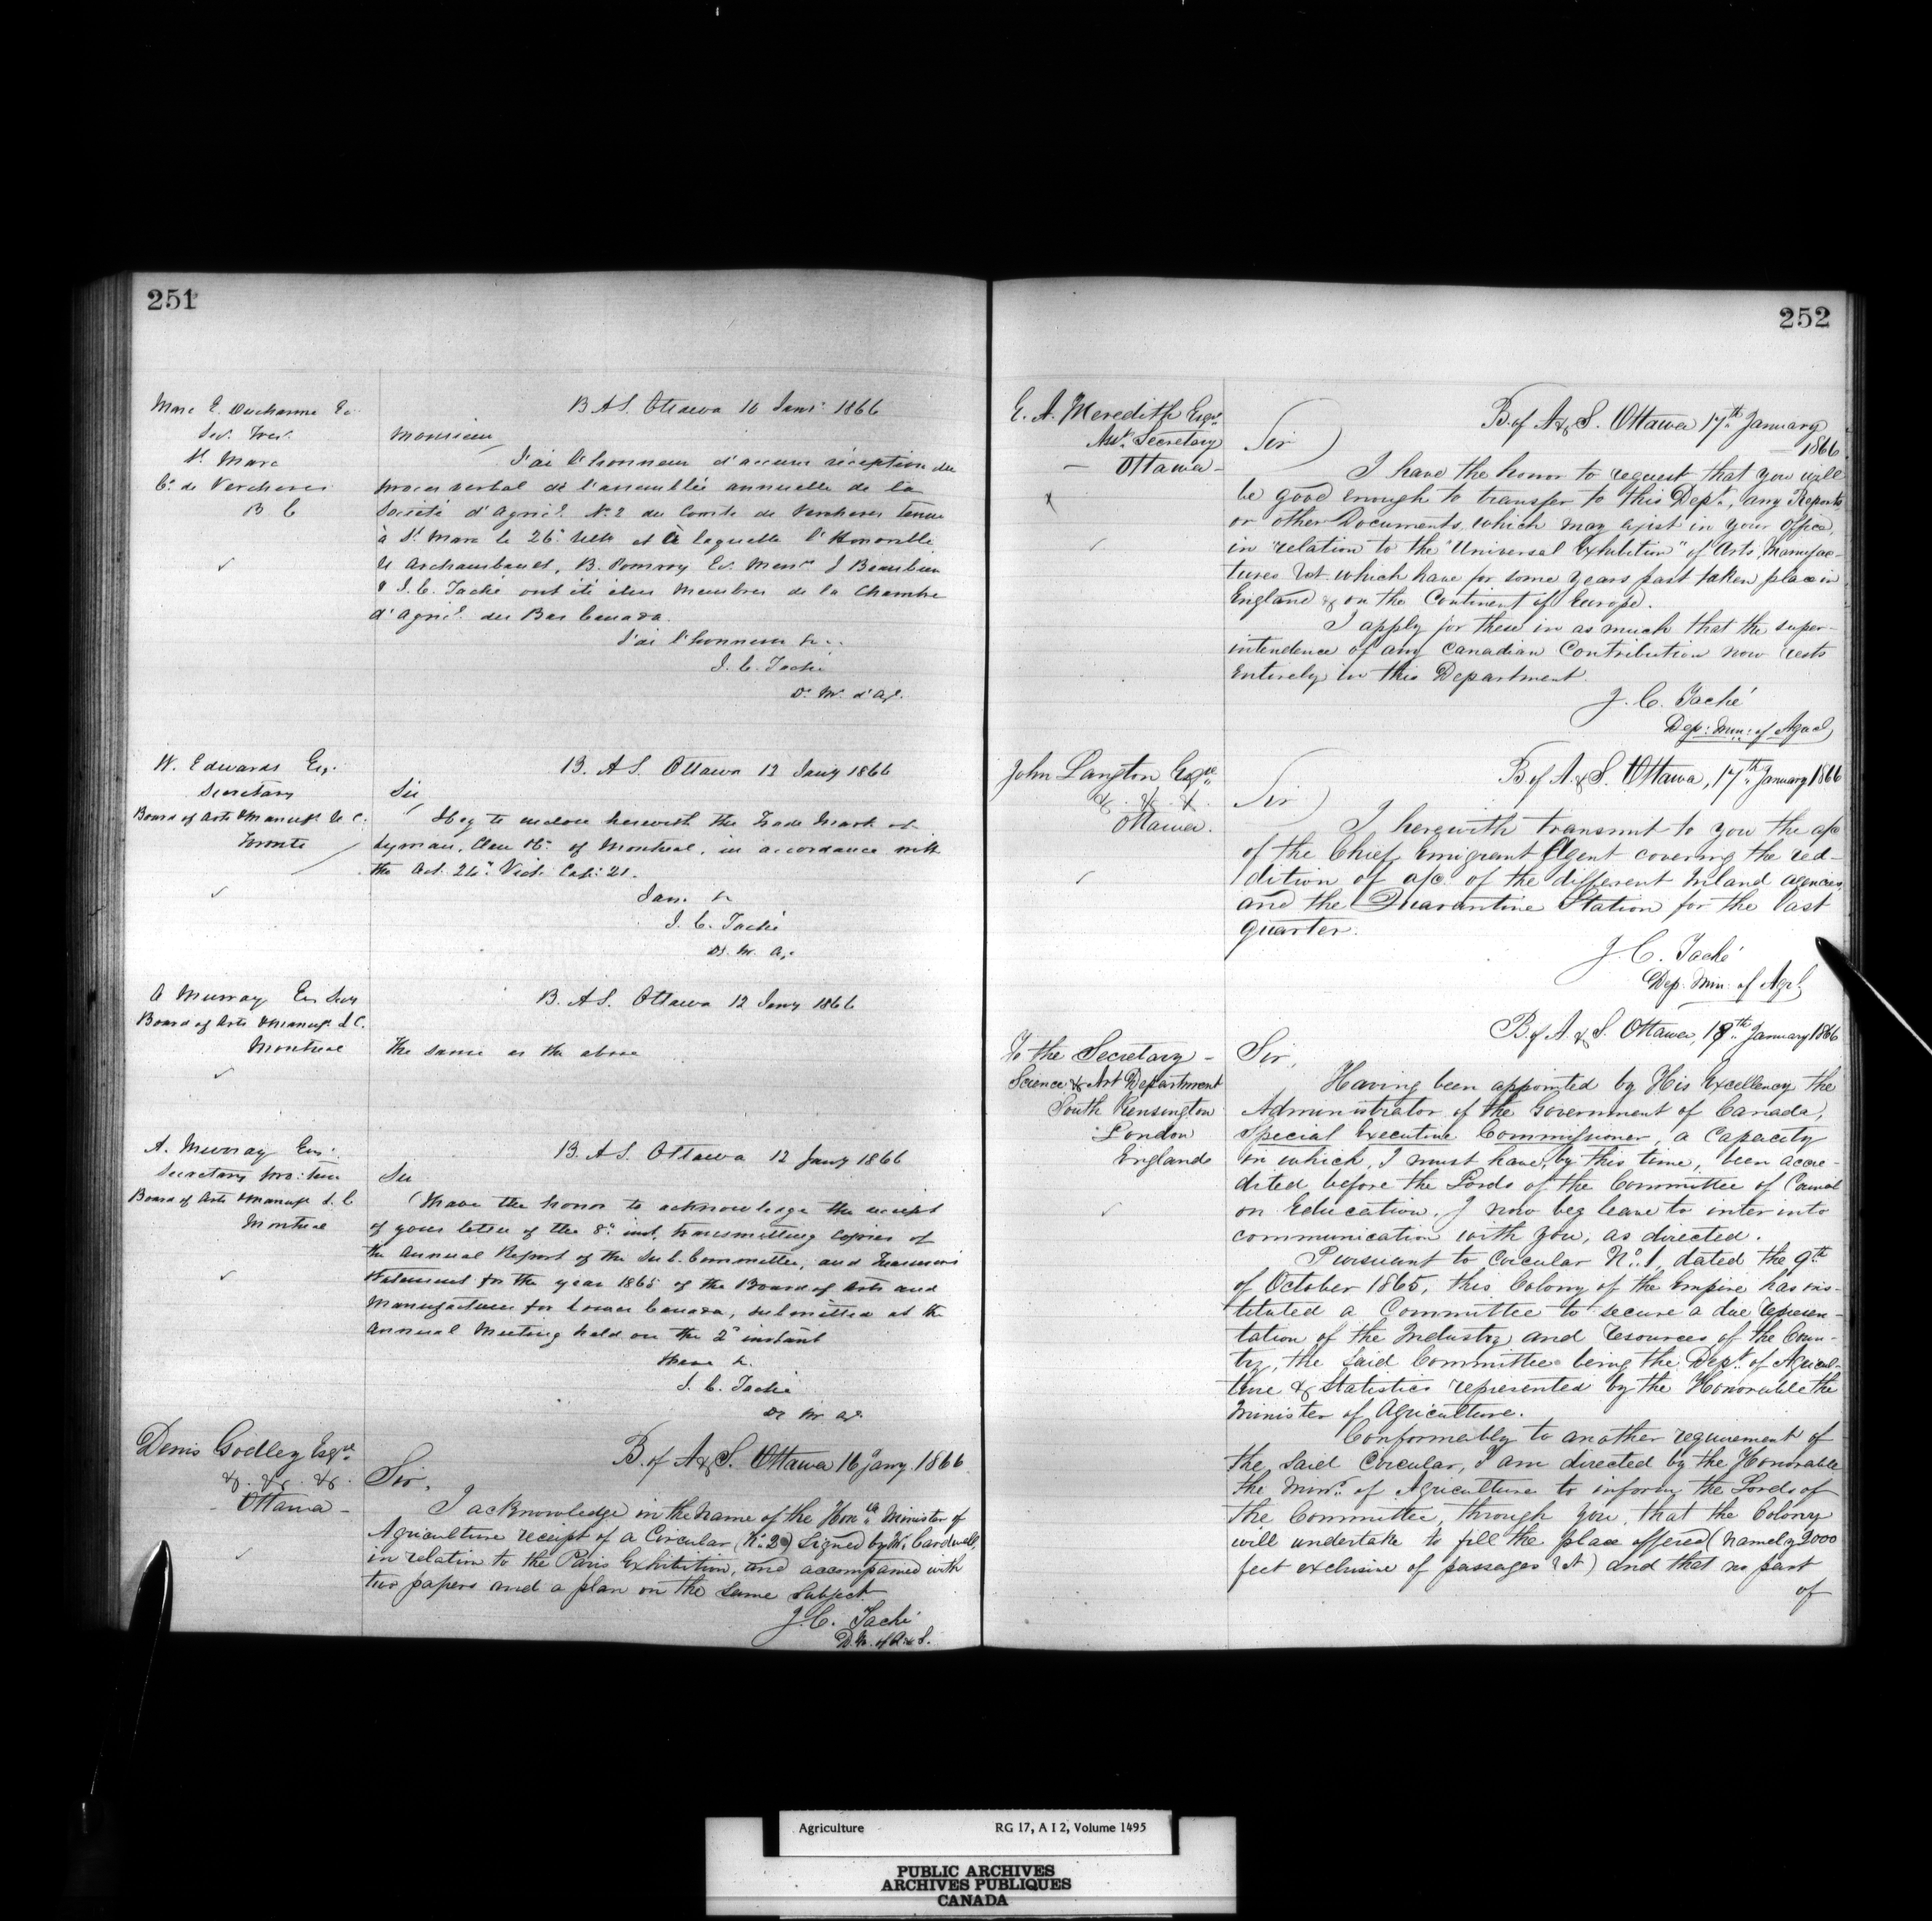 251
Marc E. Ducharme Ec.
Sec. Tres.
St. Marc
Co. de Vercheres
B C
B A S. Ottawa 10 Janr. 1866
Monsieur
J'ai l'honneur d'accuser réception du
proces verbal de l'assemblée annuelle de la
Société d'Agricl. No. 2 du Comté de Vercheres tenue
à St. Marc le 26 et à laquelle l'Honorable
U Archambault, B. Pomroy Ec. Mensr. J Beaubien
& J. C. Taché ont été élus Membres de la Chambre
d'Agricl. du Bas Canada.
J'ai l'honneur &c.
J. C. Taché
D. M. d'Ag.
W. Edwards Esq.
Secretary
Board of Arts & Manuf. U. C.
Toronto
B. A S. Ottawa 12 Jany 1866
Sir
I beg to enclose herewith the Trade Mark of
Lyman, Clare & Co. of Montreal, in accordance with
the Act. 24 Vict. Cap: 21.
I am &c
J. C. Taché
D. M. A.
A Murray Esq Secy
Board of Arts & Manuf. L C.
Montreal
B. A S. Ottawa 12 Jany 1866
The same as the above
A. Murray Esq.
Secretary pro: tem
Board of Arts & Manuf. L. C
Montreal
B. A S. Ottawa 12 Jany 1866
Sir
I have the honor to acknowledge the receipt
of your letter of the 8th inst. transmitting copies of
the Annual Report of the Sub. Committee, and Treasurers
Statement for the year 1865 of the Board of Arts and
Manufactures for Lower Canada, submitted at the
Annual Meeting held on the 2d instant
I have &c.
J. C. Taché
D. M. Ag.
Denis Godley Esqre
&. &c. &c.
Ottawa -
B. of A & S. Ottawa 16 Jany. 1866
Sir,
I acknowledge in the name of the Honble Minister of
Agriculture receipt of a Circular (No. 2) signed by Mr. Cardwell,
in relation to the Paris Exhibition, and accompanied with
two papers and a plan on the same subject
J. C. Taché
D. M. of A & S.
252
E. A. Meredith Esqre
Asst. Secretary
- Ottawa -
x
B. of A & S. Ottawa 17th January
1866
Sir )
I have the honor to request that you will
be good enough to transfer to this Dept., any Reports
or other Documents which may exist in your Office,
in relation to the "Universal Exhibition" of Arts, Manufac-
tures &ct. which have for some years past taken place in
England & on the Continent of Europe.
I apply for these in as much that the super-
intendence of any Canadian Contribution now rests
Entirely in this Department.
J. C. Taché
Dep: Min: of Agl.
John Langton Esqre
&. &. &.
Ottawa.
B of A. & S. Ottawa, 17th January 1866
Sir )
I herewith transmit to you the a/c
of the Chief Emigrant Agent covering the red-
dition of a/c of the different Inland agencies
and the Quarantine Station for the last
quarter.
J. C. Taché
Dep. Min. of Agl.
To the Secretary -
Science & Art Department
South Kensington
London
England
B of A & S. Ottawa, 18th January 1866
Sir,
Having been appointed by His Excellency the
Administrator of the Government of Canada,
Special Executive Commissioner, a Capacity
in which, I must have, by this time, been accre-
dited before the Lords of the Committee of Council
on Education, I now beg leave to inter into
communication with you, as directed.
Pursuant to Circular No. 1, dated the 9th
of October 1865, this Colony of the Empire has ins-
tituted a Committee to secure a due represen-
tation of the Industry and resources of the Coun-
try, the said Committee being the Dept. of Agricul-
ture & Statistics represented by the Honorable the
Minister of Agriculture.
Conformably to another requirement of
the said Circular, I am directed by the Honorable
the Minr. of Agriculture to inform the Lords of
the Committee, through you, that the Colony
will undertake to fill the place offered (namely 2000
feet exclusive of passages &ct) and that no part
of
Agriculture RG 17, A I 2, Volume 1495
PUBLIC ARCHIVES
ARCHIVES PUBLIQUES
CANADA